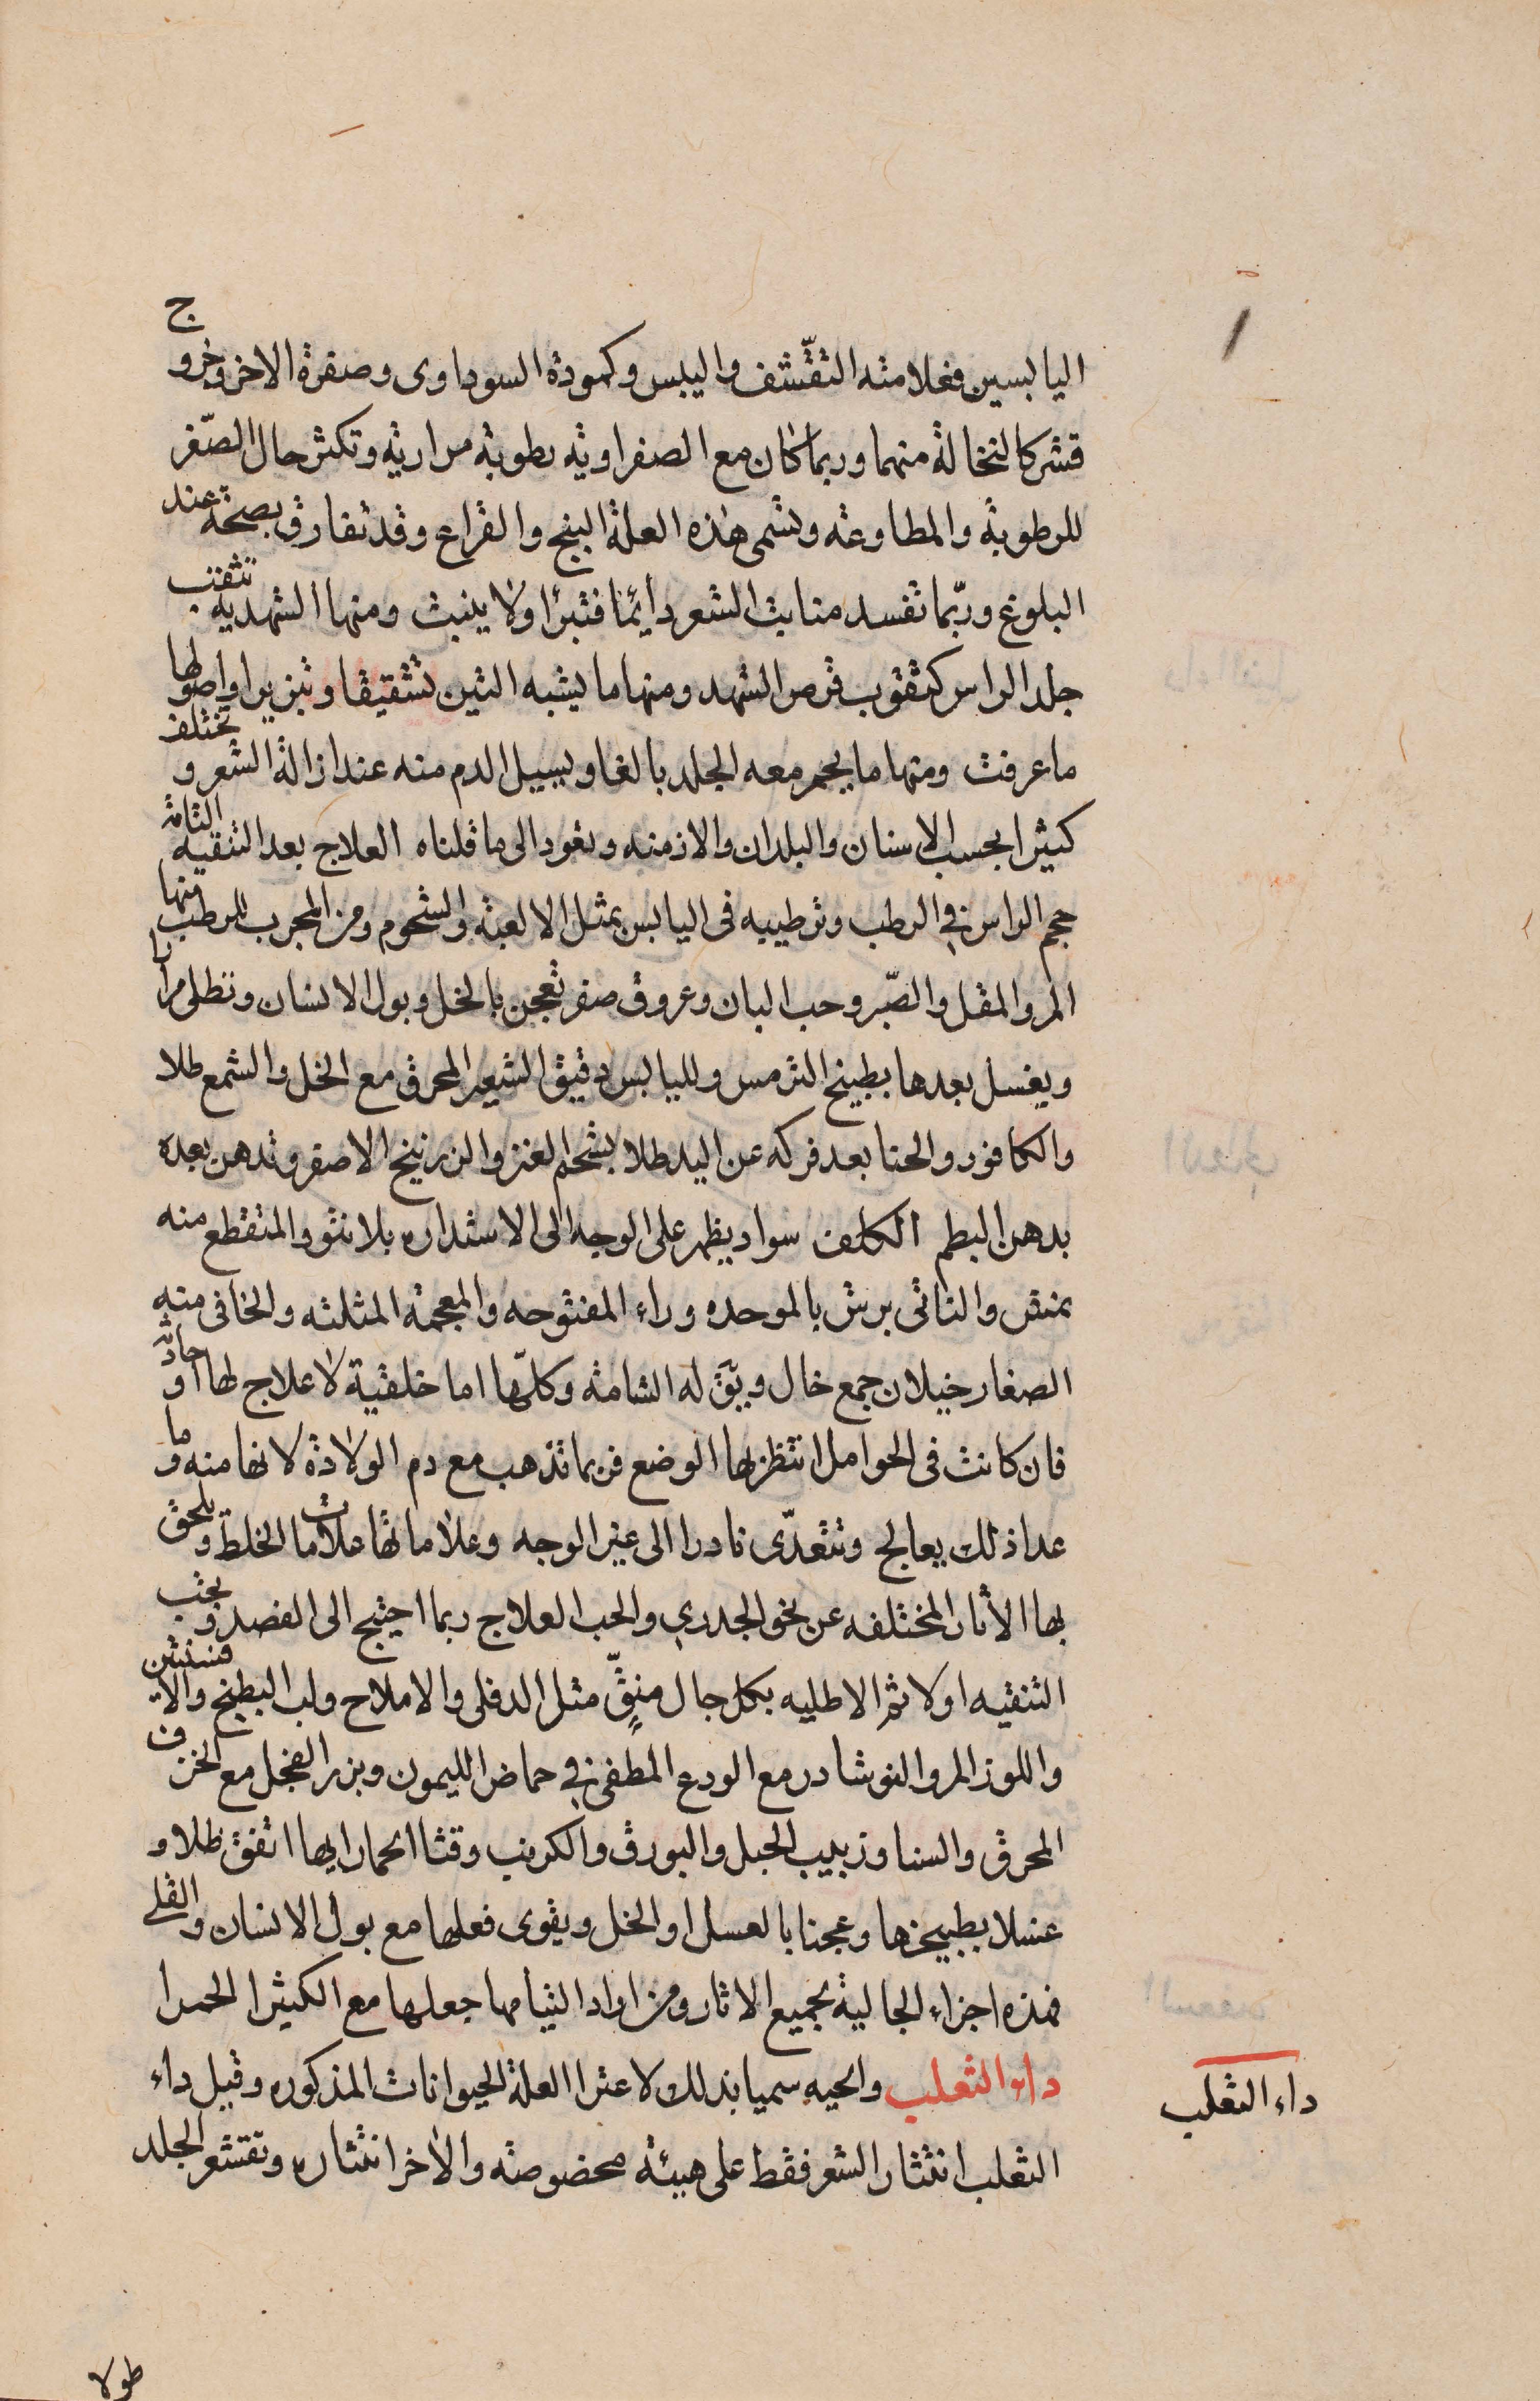 اليابسين فعلامته التقشف واليبس وكمودة السوداوى وصفرة الاخر وخروج
قشر كالنخالة منهما وربما كان مع الصفراويه رطوبة مراريه وتكثر حال الصّغر
للرطوبة والمطاوعه وتسمى هذه العلة البنج والقراع وقد تفارق بصحة عند
البلوغ وربّما تفسد منابت الشعر دائما فتبرأ ولا ينبت ومنها الشهديه تثقب
جلد الراس كثقوب قرص الشهد ومنها ما يشبه التين تشقيقا وتبزيرا واصولها
ما عرفت ومنها ما يحمر معه الجلد بالغا ويسيل الدم منه عند ازالة الشعر وتختلف
كثيرا بحسب الاسنان والبلدان والازمنه وتعود الى ما قلناه العلاج بعد التنقيه التامة
حجم الراس فى الرطب وترطيبه فى اليابس بمثل الالعبة والشحوم ومن المجرب للرطب منها
المر والمقل والصّبر وحب البان وعروق صفر تعجن بالخل وبول الانسان وتطلى مرارا
ويغسل بعدها بطبيخ الترمس ولليابس دقيق الشعير المحرق مع الخل والشمع طلا
والكافور والحنا بعد فركه عن اليد طلا بشحم العنز والزرنيخ الاصفر وتدهن بعده
بدهن البطم الكلف سواد يظهر على الوجه الى الاستداره بلا نتو والمتقطع منه
نمش والناتى برش بالموحده وراء المفتوحه والمعجمة المثلثه والخافى منه
الصغار خيلان جمع خال ويق له الشامة وكلّها اما خلقية لا علاج لها او حادثه
فان كانت فى الحوامل انتظر بها الوضع فربما تذهب مع دم الولادة لانها منه وما
عدا ذلك يعالج وتتعدّى نادرا الى غير الوجه وعلاماتها علامات الخلط ويلحق
بها الأثار المختلفه عن نحو الجدري والحب العلاج ربما احتيج الى الفصد وتجب
التنقيه اولا ثم الاطليه بكل جال منقٍّ مثل الدفلى والاملاح ولب البطيخ والافسنتين
واللوز المر والنوشادر مع الودع المطفى فى حماض الليمون وبزر الفجل مع الخزف
المحرق والسنا وزبيب الجبل والبورق والكرنب وقثا الحمار ايها اتفق طلا و
غسلا بطبيخها وعجنا بالعسل او الخل ويقوى فعلها مع بول الانسان والقلى
فهذه اجزاء الجالية بجميع الاثار ومن اراد التيامها جعلها مع الكثيرا الحمرا
داء الثعلب والحيه سميا بذلك لاعترا العلة الحيوانات المذكوره وقيل داء
الثعلب انتثار الشعر فقط على هيئة مخصوصة والاخر انتثاره وتقشر الجلد
داء الثعلب
طولا